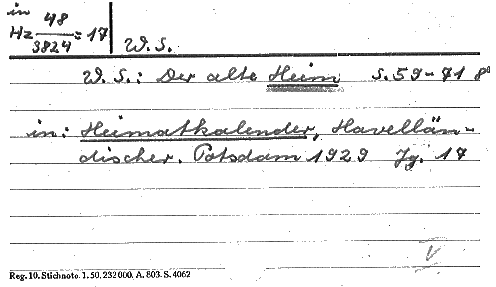 in
Hz 48/3824 = 17
W. S.
W. S.: Der alte Heim S. 59-71 8°
in: Heimatkalender, Havellän-
discher. Potsdam 1929 Jg. 17
V
Reg. 10. Stichnote. 1. 50, 232 000. A. 803. S. 4062